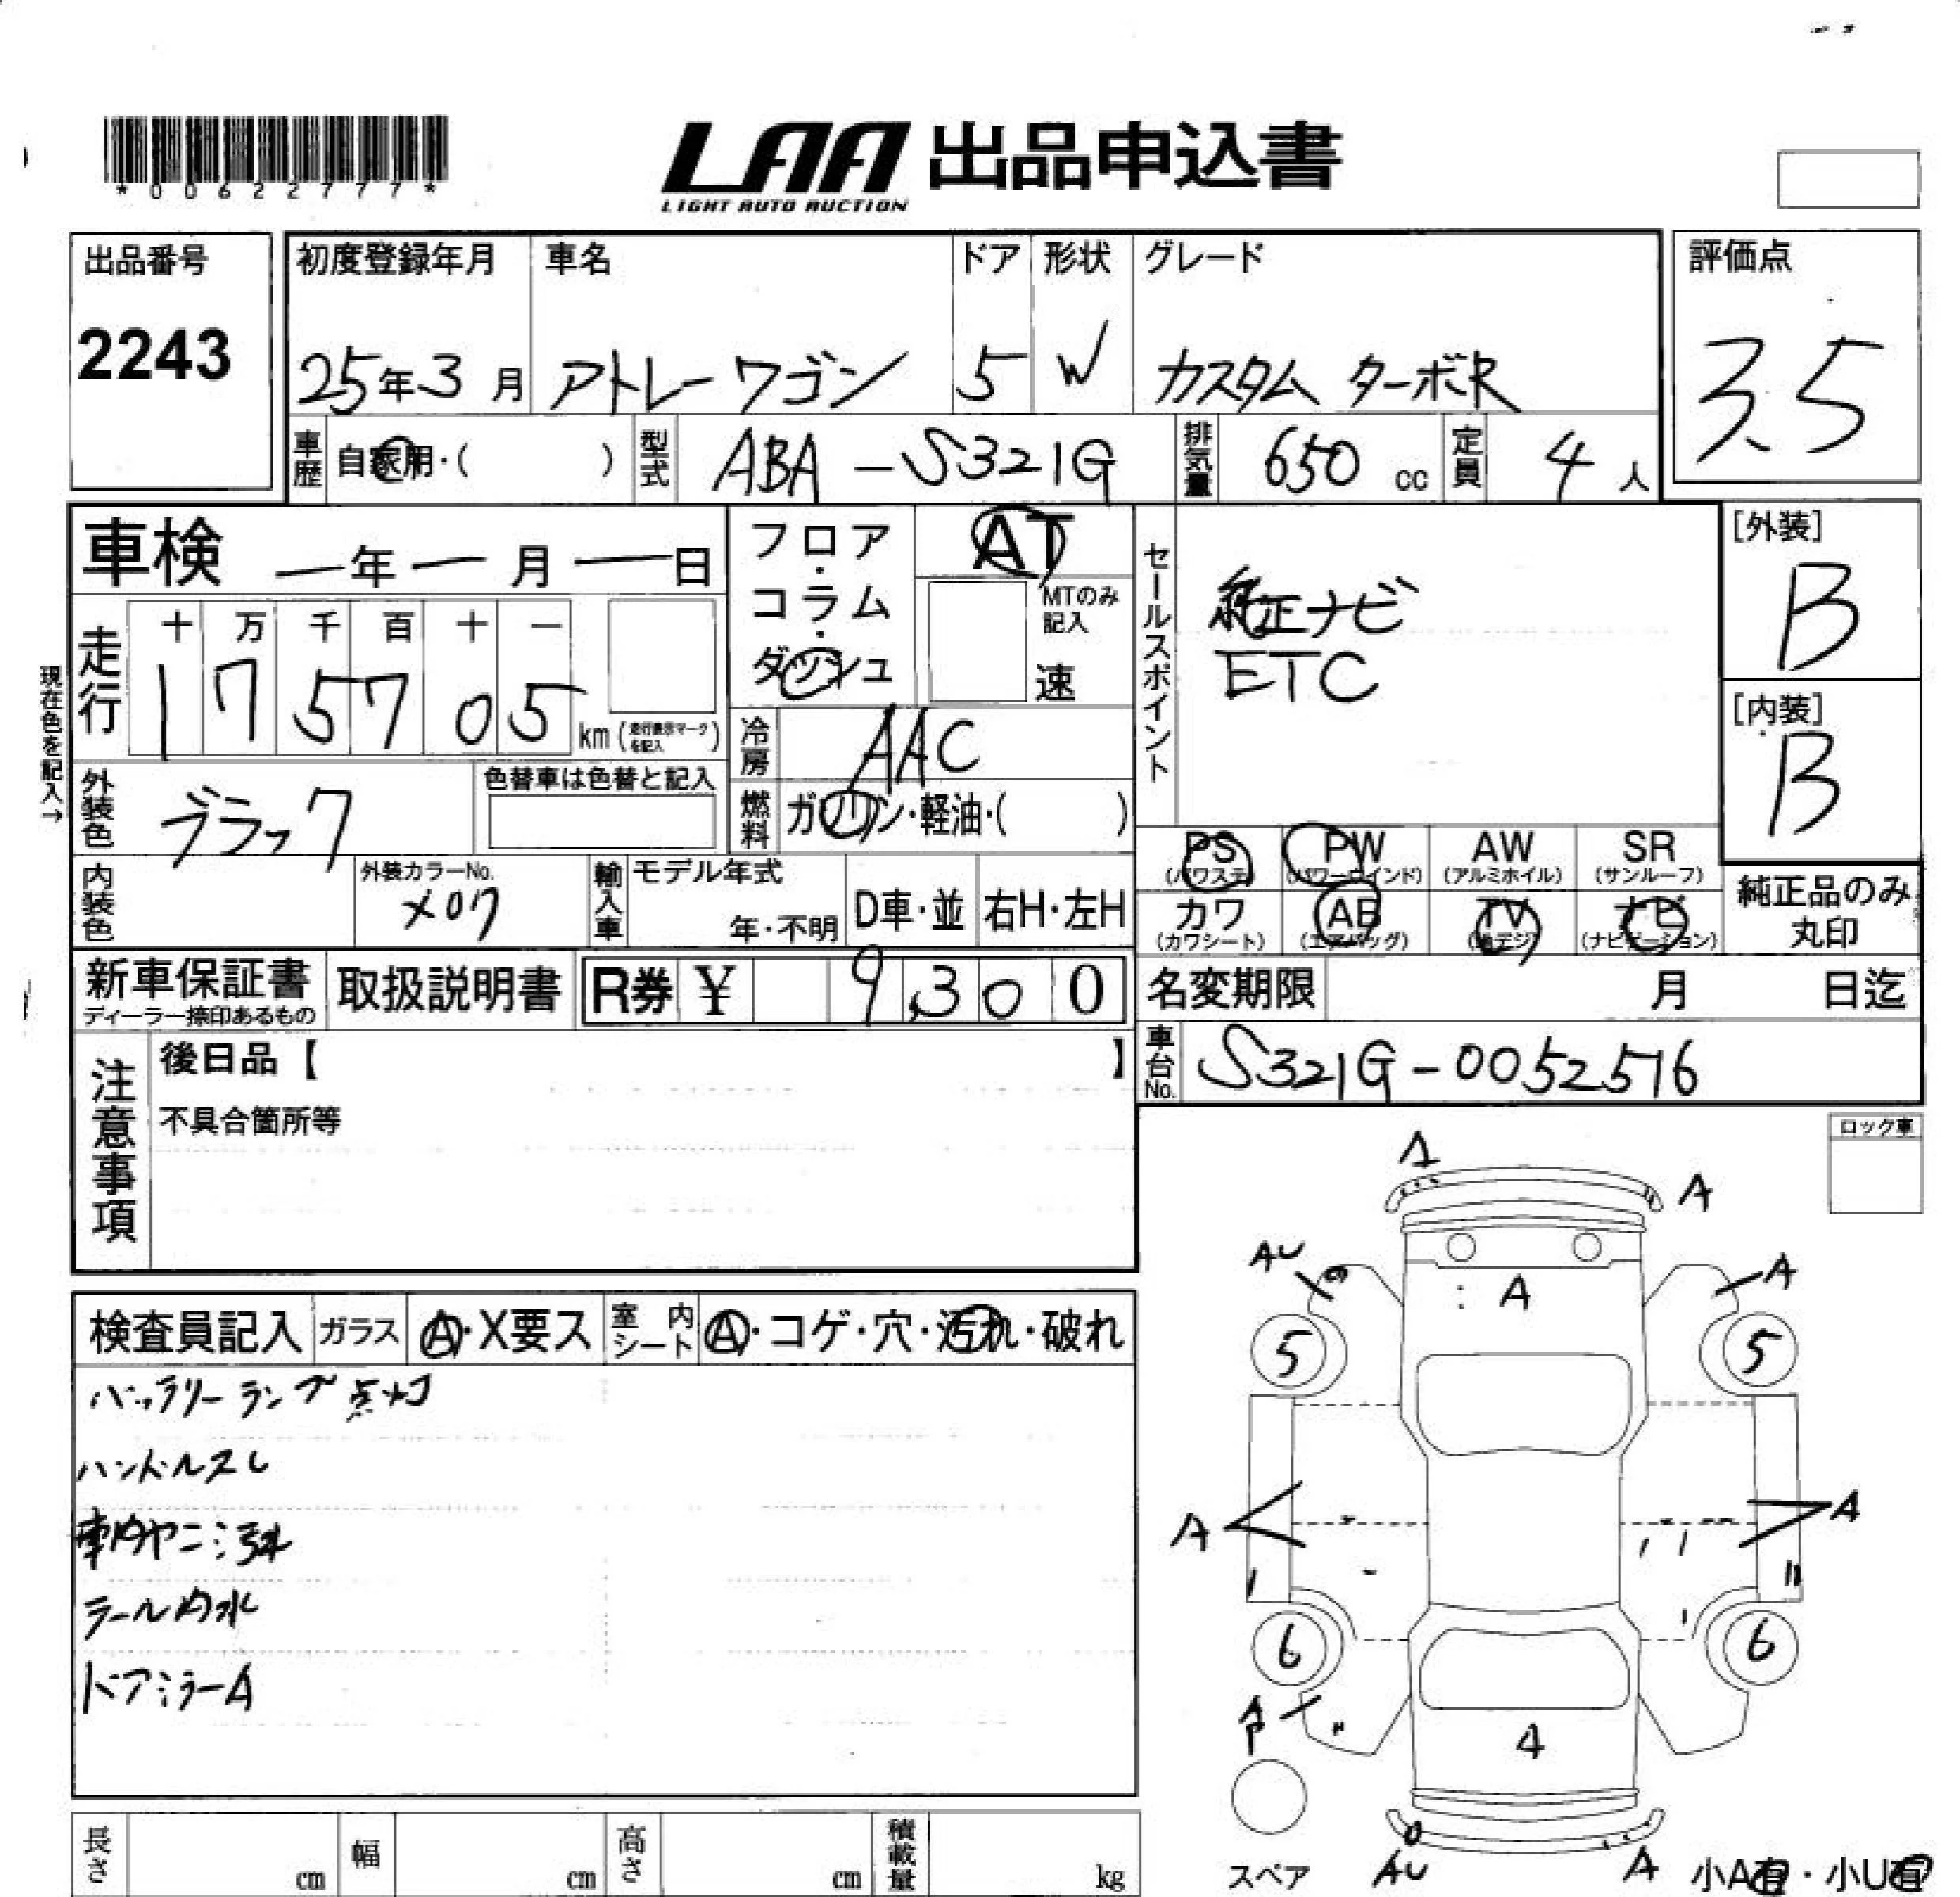 *00622777*
LAA 出品申込書
LIGHT AUTO AUCTION
出品番号 初度登録年月 車名 ドア 形状 グレード 評価点
2243 25年3月 アトレーワゴン 5 W カスタム ターボR 3.5
車歴 自家用・( ) 型式 ABA-S321G 排気量 650 cc 定員 4 人
車検 ー年ー月ー日 フロア・コラム・ダッシュ AT セールスポイント [外装]
MTのみ記入 速 純正ナビ B
ETC
現在色を記入→
走行 十 万 千 百 十 一
1 7 5 7 0 5 km (走行表示マークを記入) [内装]
冷房 AAC B
外装色 ブラック 色替車は色替と記入 燃料 ガソリン・軽油・( )
PS (パワステ) PW (パワーウインド) AW (アルミホイル) SR (サンルーフ)
内装色 外装カラーNo. X07 輸入車 モデル年式 年・不明 D車・並 右H・左H
カワ (カワシート) AB (エアバッグ) TV (地デジ) ナビ (ナビゲーション) 純正品のみ丸印
新車保証書 ディーラー捺印あるもの 取扱説明書 R券 ¥ 9,300 名変期限 月 日迄
注意事項 後日品【 】 車台No. S321G-0052516
不具合箇所等 ロック車
A
A
AU A
A
検査員記入 ガラス A・X要ス 室内シート A・コゲ・穴・汚れ・破れ
5 5
バッテリーランプ点灯
ハンドルスレ
A A
車内ヤニ汚れ
テール内水
6 6
ドアミラーA
A P
A
長さ cm 幅 cm 高さ cm 積載量 kg
スペア AU A 小A有・小U有